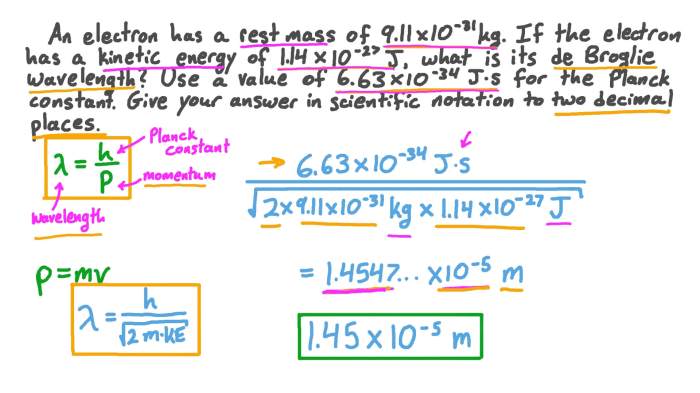 An electron has a rest mass of 9.11×10⁻³¹ kg. If the electron
has a kinetic energy of 1.14×10⁻²⁷ J, what is its de Broglie
wavelength? Use a value of 6.63×10⁻³⁴ J·s for the Planck
constant. Give your answer in scientific notation to two decimal
places.
λ = h/p
Planck
constant
momentum
wavelength
→ 6.63×10⁻³⁴ J·s
√2×9.11×10⁻³¹ kg × 1.14×10⁻²⁷ J
p=mv
= 1.4547... ×10⁻⁵ m
λ = h/√2m·KE
1.45×10⁻⁵ m